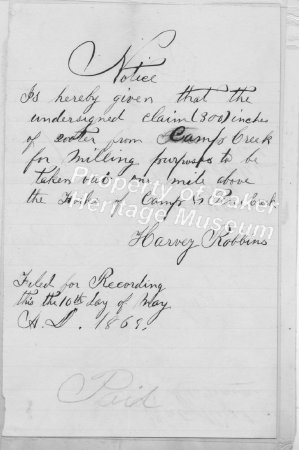 Notice
Is hereby given that the
undersigned claim (300) inches
of water from Camp Creek
for Milling purposes to be
taken out one mile above
the Forks of Camp &
Harvey Robbins
Filed for Recording
this the 10th day of May
A.D. 1869.
Paid
Property of Baker
Heritage Museum